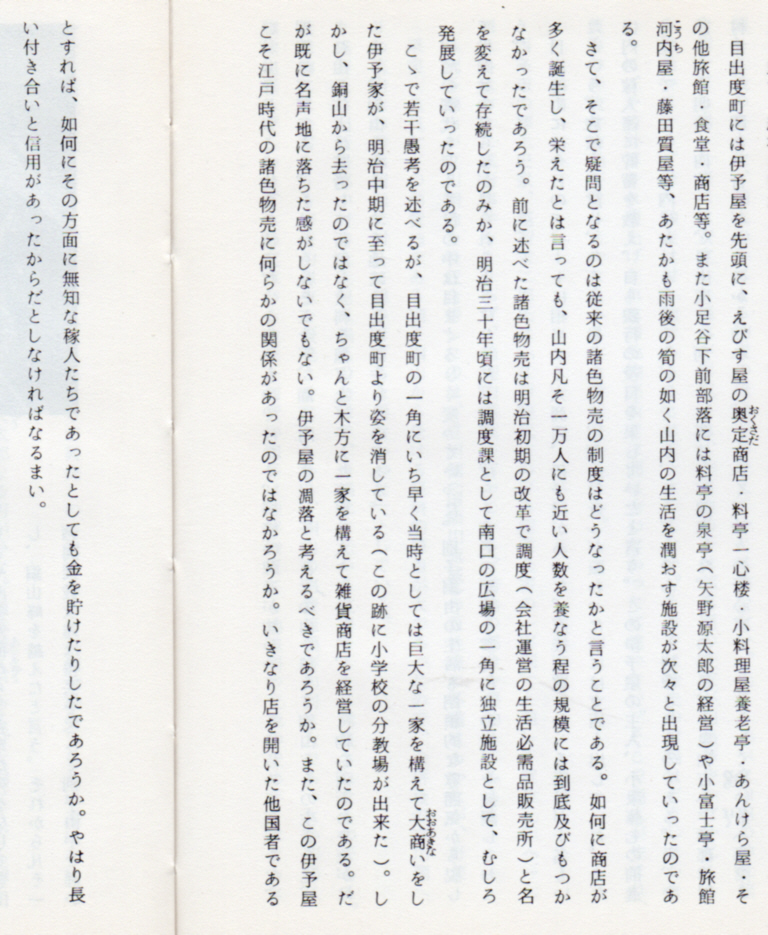 目出度町には伊予屋を先頭に、えびす屋の奥定商店・料亭一心楼・小料理屋養老亭・あんけら屋・そ
の他旅館・食堂・商店等。また小足谷下前部落には料亭の泉亭(矢野源太郎の経営)や小富士亭・旅館
河内屋・藤田質屋等、あたかも雨後の筍の如く山内の生活を潤おす施設が次々と出現していったのであ
る。
さて、そこで疑問となるのは従来の諸色物売の制度はどうなったかと言うことである。如何に商店が
多く誕生し、栄えたとは言っても、山内凡そ一万人にも近い人数を養なう程の規模には到底及びもつか
なかったであろう。前に述べた諸色物売は明治初期の改革で調度(会社運営の生活必需品販売所)と名
を変えて存続したのみか、明治三十年頃には調度課として南口の広場の一角に独立施設として、むしろ
発展していったのである。
こゝで若干愚考を述べるが、目出度町の一角にいち早く当時としては巨大な一家を構えて大商いをし
た伊予家が、明治中期に至って目出度町より姿を消している(この跡に小学校の分教場が出来た)。し
かし、銅山から去ったのではなく、ちゃんと木方に一家を構えて雑貨商店を経営していたのである。だ
が既に名声地に落ちた感がしないでもない。伊予屋の凋落と考えるべきであろうか。また、この伊予屋
こそ江戸時代の諸色物売に何らかの関係があったのではなかろうか。いきなり店を開いた他国者である
とすれば、如何にその方面に無知な稼人たちであったとしても金を貯けたりしたであろうか。やはり長
い付き合いと信用があったからだとしなければなるまい。
おくさだ
こうち
おおあきな